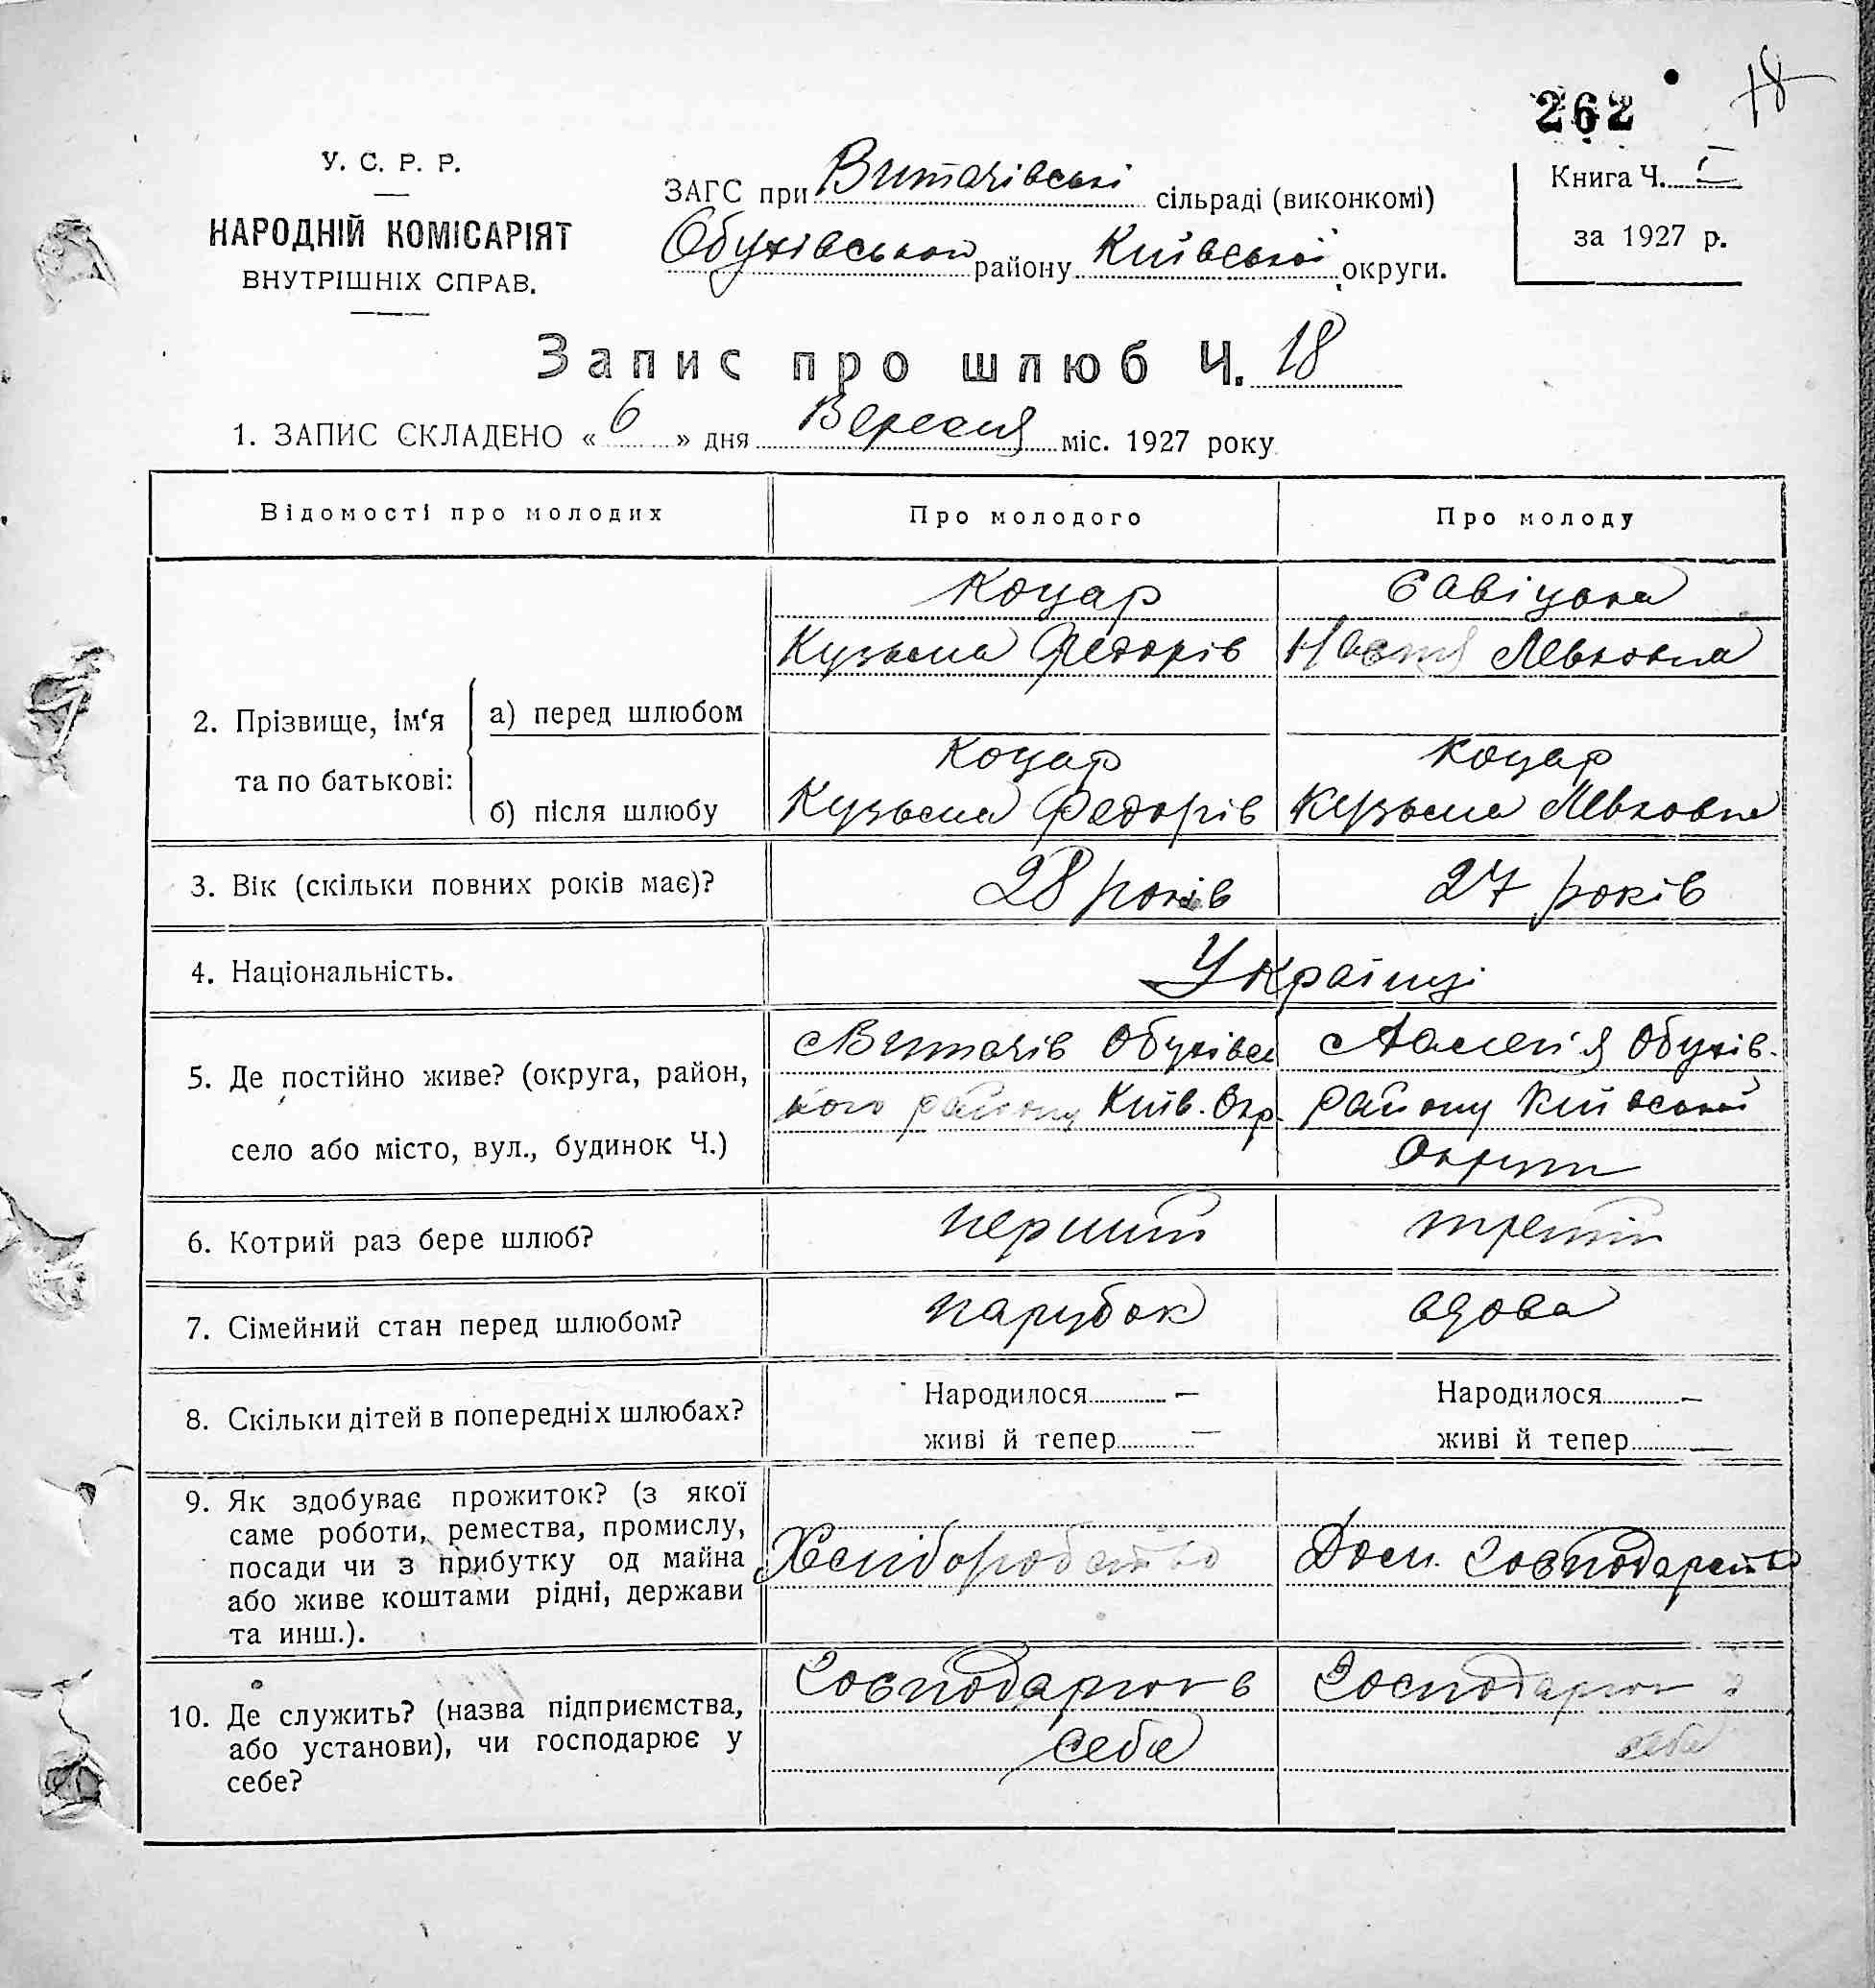 262
18
У. С. Р. Р.
НАРОДНІЙ КОМІСАРІЯТ
ВНУТРІШНІХ СПРАВ.
ЗАГС при Витачівські сільраді (виконкомі)
Обухівського району Київської округи.
Книга Ч. I
за 1927 р.
Запис про шлюб Ч. 18
1. ЗАПИС СКЛАДЕНО « 6 » дня Вересня міс. 1927 року
Відомості про молодих Про молодого Про молоду
Коцар Савіцька
Кузьма Федорів Настя Левковна
2. Прізвище, ім‘я та по батькові:
а) перед шлюбом
Коцар Коцар
б) після шлюбу Кузьма Федорів Кузьма Левковна
3. Вік (скільки повних років має)? 28 років 27 років
4. Національність. Українці
5. Де постійно живе? (округа, район,
село або місто, вул., будинок Ч.)
Витачів Обухівсь
кого району Київ. Окр.
Обухів.
району Київської
Округи
6. Котрий раз бере шлюб? перший третій
7. Сімейний стан перед шлюбом? парубок вдова
8. Скільки дітей в попередніх шлюбах?
Народилося — Народилося —
живі й тепер — живі й тепер —
9. Як здобуває прожиток? (з якої
саме роботи, ремества, промислу,
посади чи з прибутку од майна
або живе коштами рідні, держави
та инш.).
Хліборобство Дом. Господарство
10. Де служить? (назва підприємства,
або установи), чи господарює у
себе?
Господарює в Господарює в
себе себе